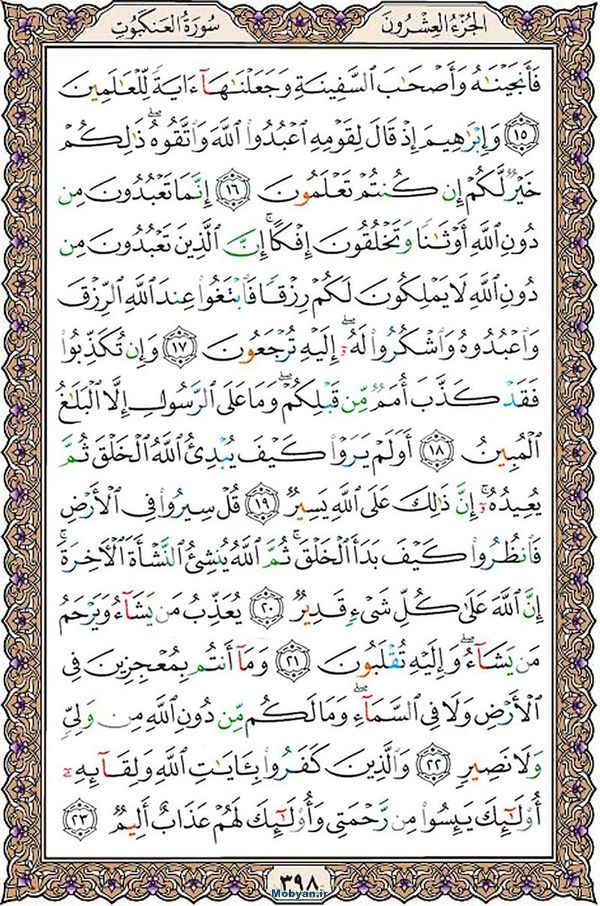 سُورَةُ العَنكَبُوتِ
الجُزءُ العِشرُونَ
فَأَنجَيۡنَٰهُ وَأَصۡحَٰبَ ٱلسَّفِينَةِ وَجَعَلۡنَٰهَآ ءَايَةٗ لِّلۡعَٰلَمِينَ
١٥ وَإِبۡرَٰهِيمَ إِذۡ قَالَ لِقَوۡمِهِ ٱعۡبُدُواْ ٱللَّهَ وَٱتَّقُوهُۖ ذَٰلِكُمۡ
خَيۡرٞ لَّكُمۡ إِن كُنتُمۡ تَعۡلَمُونَ ١٦ إِنَّمَا تَعۡبُدُونَ مِن
دُونِ ٱللَّهِ أَوۡثَٰنٗا وَتَخۡلُقُونَ إِفۡكًاۚ إِنَّ ٱلَّذِينَ تَعۡبُدُونَ مِن
دُونِ ٱللَّهِ لَا يَمۡلِكُونَ لَكُمۡ رِزۡقٗا فَٱبۡتَغُواْ عِندَ ٱللَّهِ ٱلرِّزۡقَ
وَٱعۡبُدُوهُ وَٱشۡكُرُواْ لَهُۥٓۖ إِلَيۡهِ تُرۡجَعُونَ ١٧ وَإِن تُكَذِّبُواْ
فَقَدۡ كَذَّبَ أُمَمٞ مِّن قَبۡلِكُمۡۖ وَمَا عَلَى ٱلرَّسُولِ إِلَّا ٱلۡبَلَٰغُ
ٱلۡمُبِينُ ١٨ أَوَلَمۡ يَرَوۡاْ كَيۡفَ يُبۡدِئُ ٱللَّهُ ٱلۡخَلۡقَ ثُمَّ
يُعِيدُهُۥٓۚ إِنَّ ذَٰلِكَ عَلَى ٱللَّهِ يَسِيرٞ ١٩ قُلۡ سِيرُواْ فِي ٱلۡأَرۡضِ
فَٱنظُرُواْ كَيۡفَ بَدَأَ ٱلۡخَلۡقَۚ ثُمَّ ٱللَّهُ يُنشِئُ ٱلنَّشۡأَةَ ٱلۡأٓخِرَةَۚ
إِنَّ ٱللَّهَ عَلَىٰ كُلِّ شَيۡءٖ قَدِيرٞ ٢٠ يُعَذِّبُ مَن يَشَآءُ وَيَرۡحَمُ
مَن يَشَآءُۖ وَإِلَيۡهِ تُقۡلَبُونَ ٢١ وَمَآ أَنتُم بِمُعۡجِزِينَ فِي
ٱلۡأَرۡضِ وَلَا فِي ٱلسَّمَآءِۖ وَمَا لَكُم مِّن دُونِ ٱللَّهِ مِن وَلِيّٖ
وَلَا نَصِيرٖ ٢٢ وَٱلَّذِينَ كَفَرُواْ بِـَٔايَٰتِ ٱللَّهِ وَلِقَآئِهِۦٓ
أُوْلَٰٓئِكَ يَئِسُواْ مِن رَّحۡمَتِي وَأُوْلَٰٓئِكَ لَهُمۡ عَذَابٌ أَلِيمٞ ٢٣
٣٩٨
Mobyan.ir